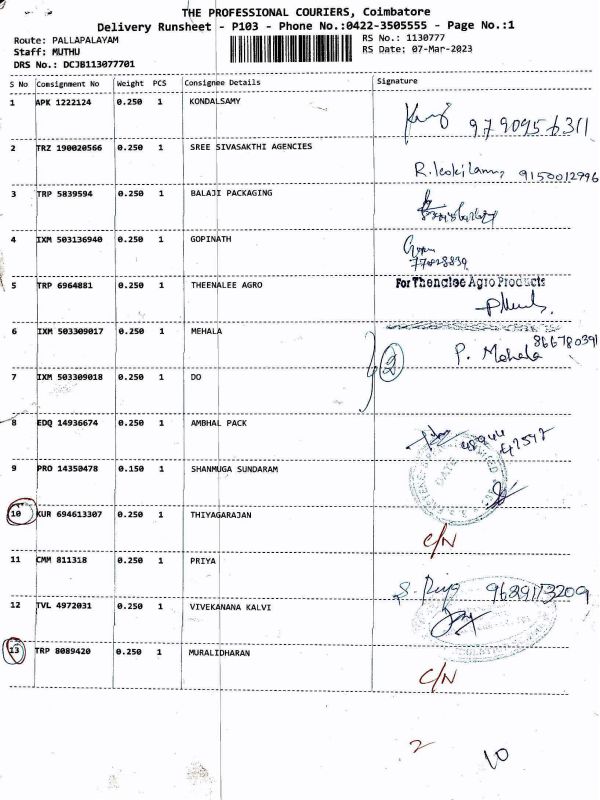 THE PROFESSIONAL COURIERS, Coimbatore
Delivery Runsheet - P103 - Phone No.:0422-3505555 - Page No.:1
Route: PALLAPALAYAM
RS No.: 1130777
Staff: MUTHU
RS Date: 07-Mar-2023
DRS No.: DCJB113077701
S No Consignment No Weight PCS Consignee Details Signature
1 APK 1222124 0.250 1 KONDALSAMY
9790956311
2 TRZ 190020566 0.250 1 SREE SIVASAKTHI AGENCIES
9150012996
3 TRP 5839594 0.250 1 BALAJI PACKAGING
4 IXM 503136940 0.250 1 GOPINATH
5 TRP 6964881 0.250 1 THEENALEE AGRO
For Thenalee Agro Products
6 IXM 503309017 0.250 1 MEHALA
P. Mehala 866780391
2
7 IXM 503309018 0.250 1 DO
8 EDQ 14936674 0.250 1 AMBHAL PACK
9 PRO 14350478 0.150 1 SHANMUGA SUNDARAM
DATE
10 KUR 694613307 0.250 1 THIYAGARAJAN
C/N
11 CMM 811318 0.250 1 PRIYA
S. Priya 9689173209
12 TVL 4972031 0.250 1 VIVEKANANA KALVI
13 TRP 8089420 0.250 1 MURALIDHARAN
C/N
2 10